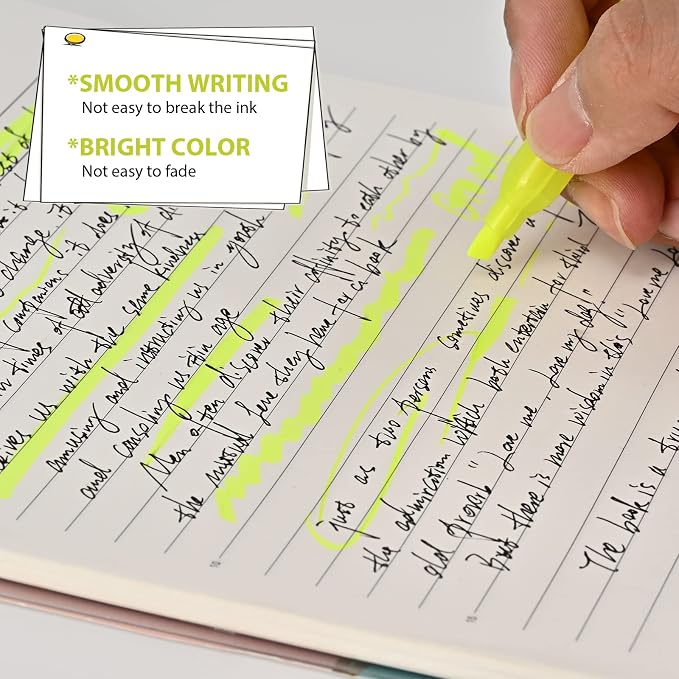 *SMOOTH WRITING
Not easy to break the ink
*BRIGHT COLOR
Not easy to fade
change. it
times of adversity of di
us with the same kindness
amusing and instructing us in youth
and consoling us in age
Men often discover their affinity to each other by
the mutual love they have for a book
just as two persons sometimes discover a
the admiration which both entertain for third
old proverb "Love me, love my dog".
But there is more wisdom in this "Love me
The book is a